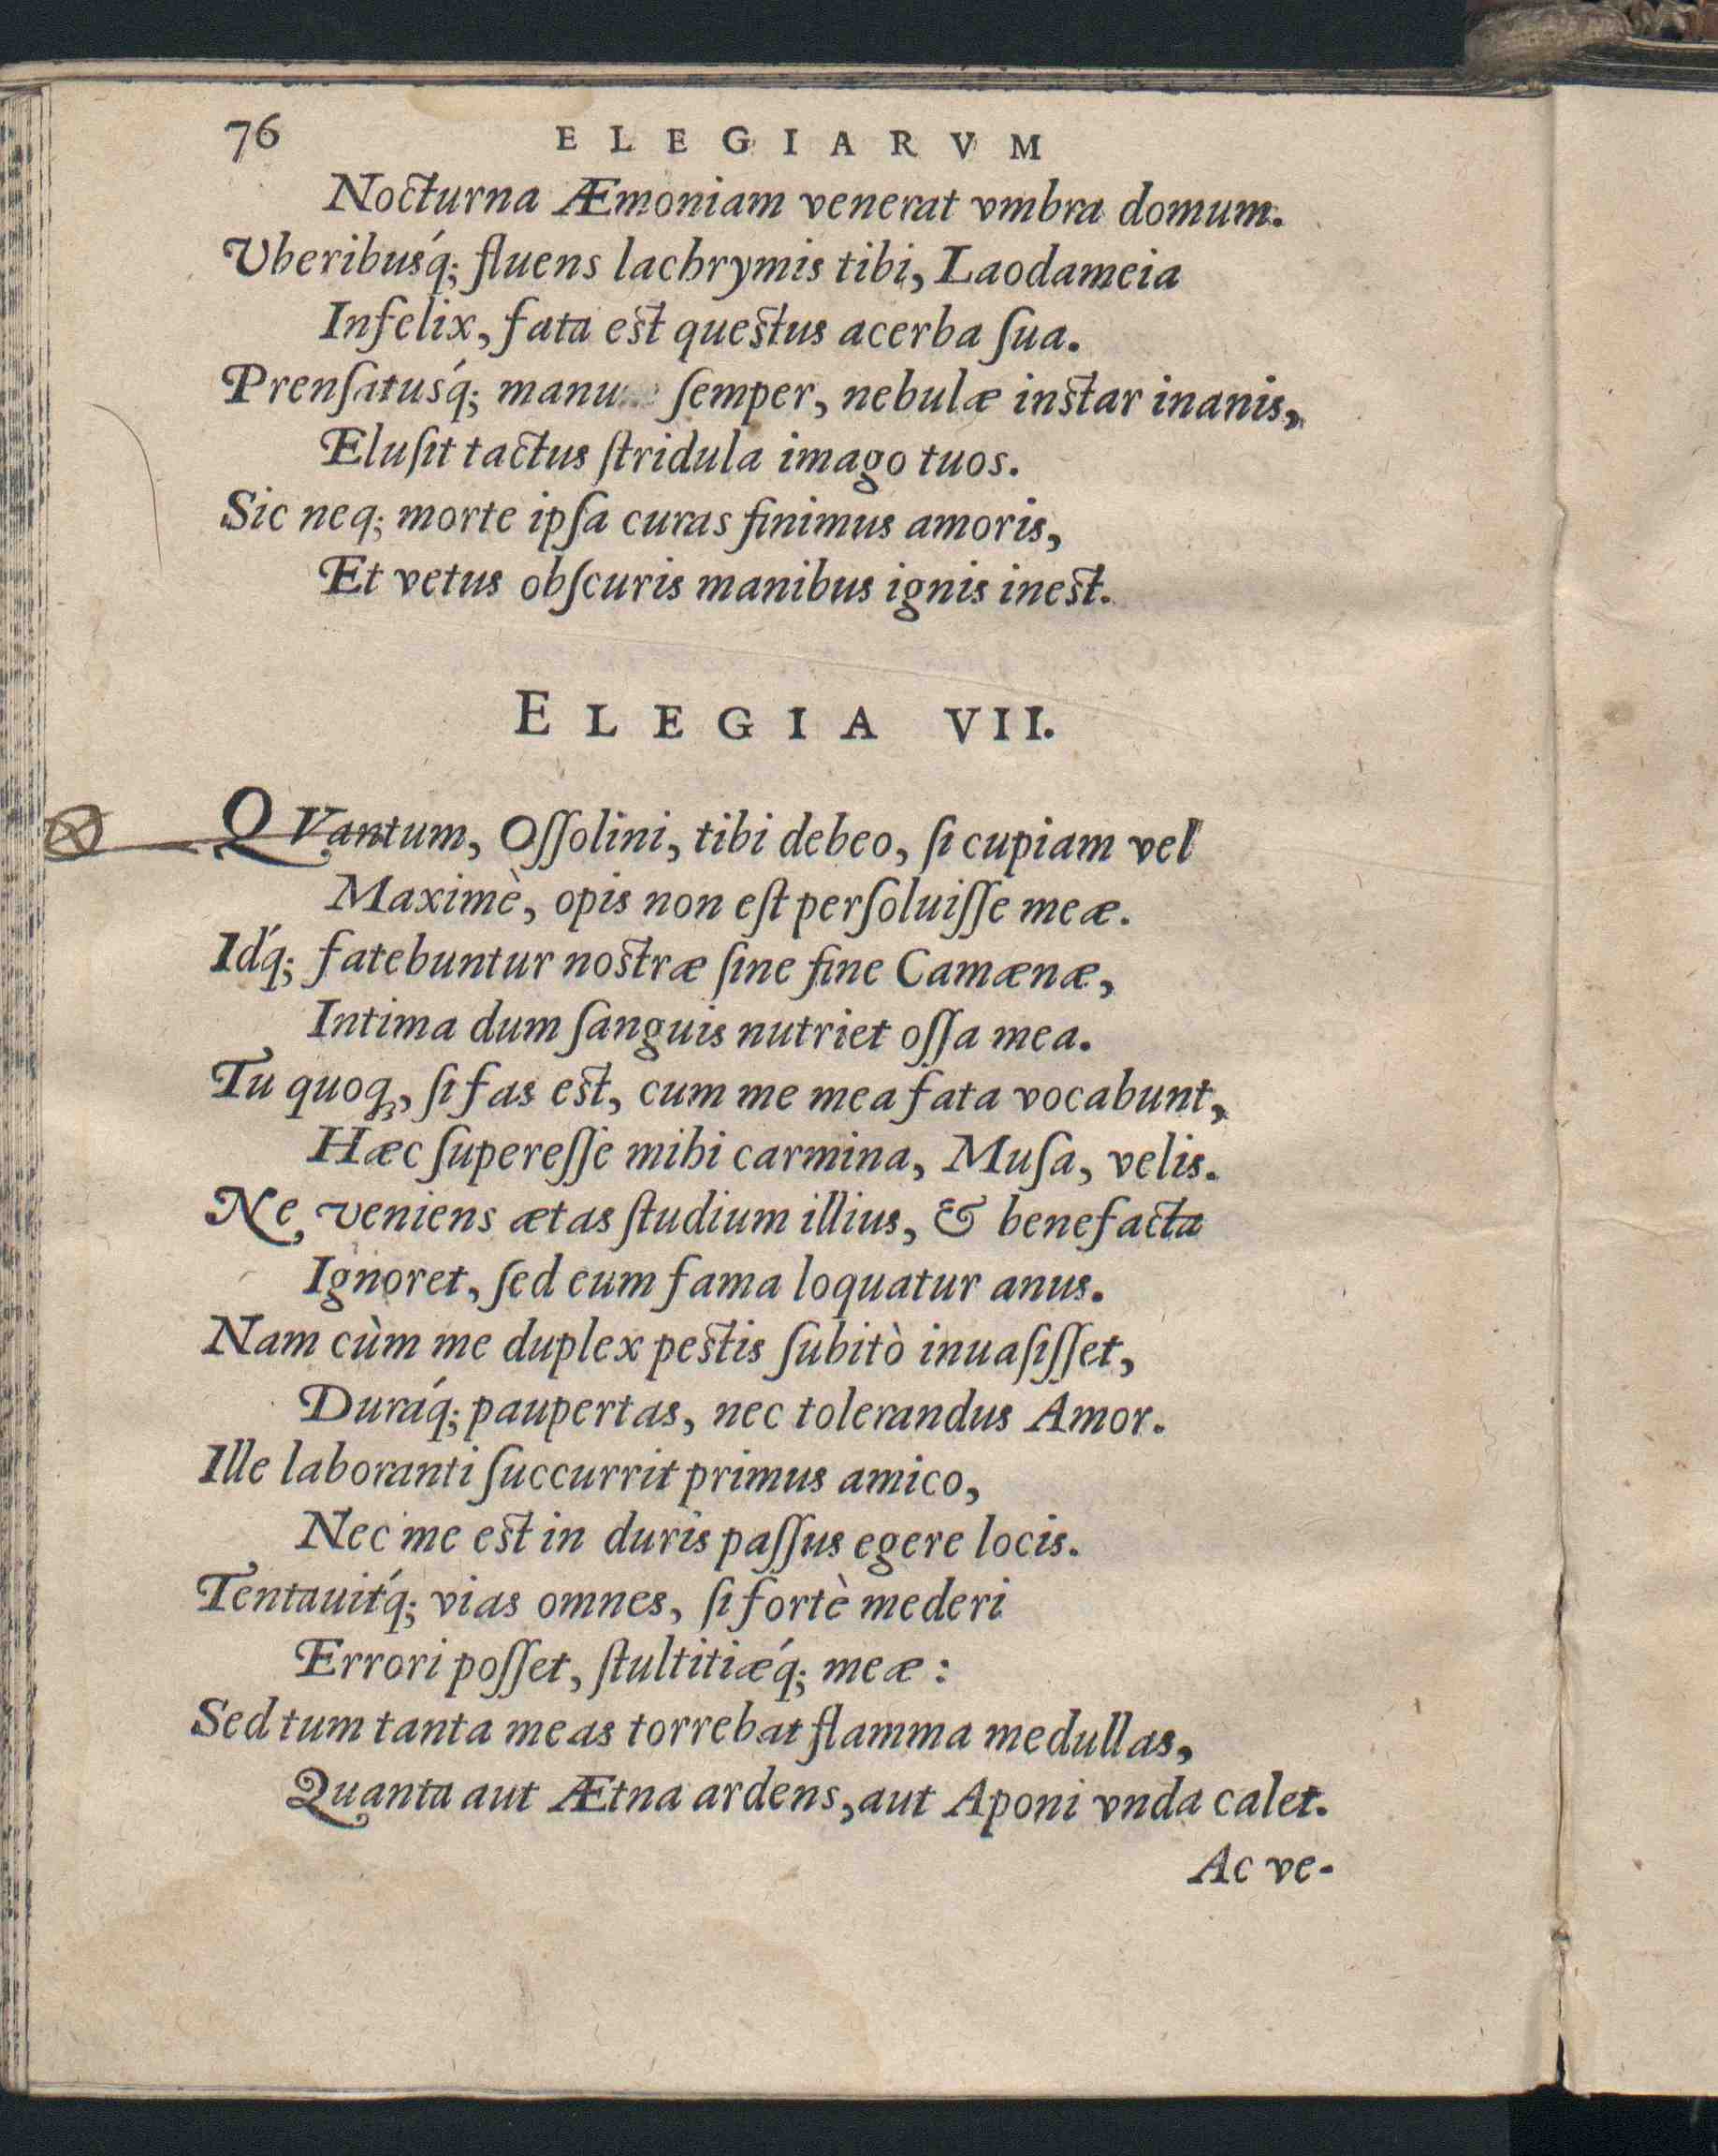 76 ELEGIARVM
Nocturna Æmoniam venerat vmbra domum.
Vberibusq́; fluens lachrymis tibi, Laodameia
Infelix, fata est questus acerba ſua.
Prenſatusq́; ſemper, nebulæ instar inanis,
Eluſit tactus ſtridula imago tuos.
Sic neq; morte ipſa curas finimus amoris,
Et vetus obſcuris manibus ignis inest.
ELEGIA VII.
QVantum, Oſſolini, tibi debeo, ſi cupiam vel
Maximè, opis non eſt perſoluiſſe meæ.
Idq́; fatebuntur nostræ ſine fine Camænæ,
Intima dum ſanguis nutriet oſſa mea.
Tu quoq;, ſi fas est, cum me mea fata vocabunt,
Hæc ſupereſſe mihi carmina, Muſa, velis.
Ne veniens ætas ſtudium illius, & benefacta
Ignoret, ſed eum fama loquatur anus.
Nam cùm me duplex pestis ſubitò inuaſiſſet,
Duráq́; paupertas, nec tolerandus Amor.
Ille laboranti ſuccurrit primus amico,
Nec me est in duris paſſus egere locis.
Tentauitq́; vias omnes, ſi fortè mederi
Errori poſſet, ſtultitiæq́; meæ:
Sed tum tanta meas torrebat flamma medullas,
Quanta aut Ætna ardens, aut Aponi vnda calet.
Ac ve-